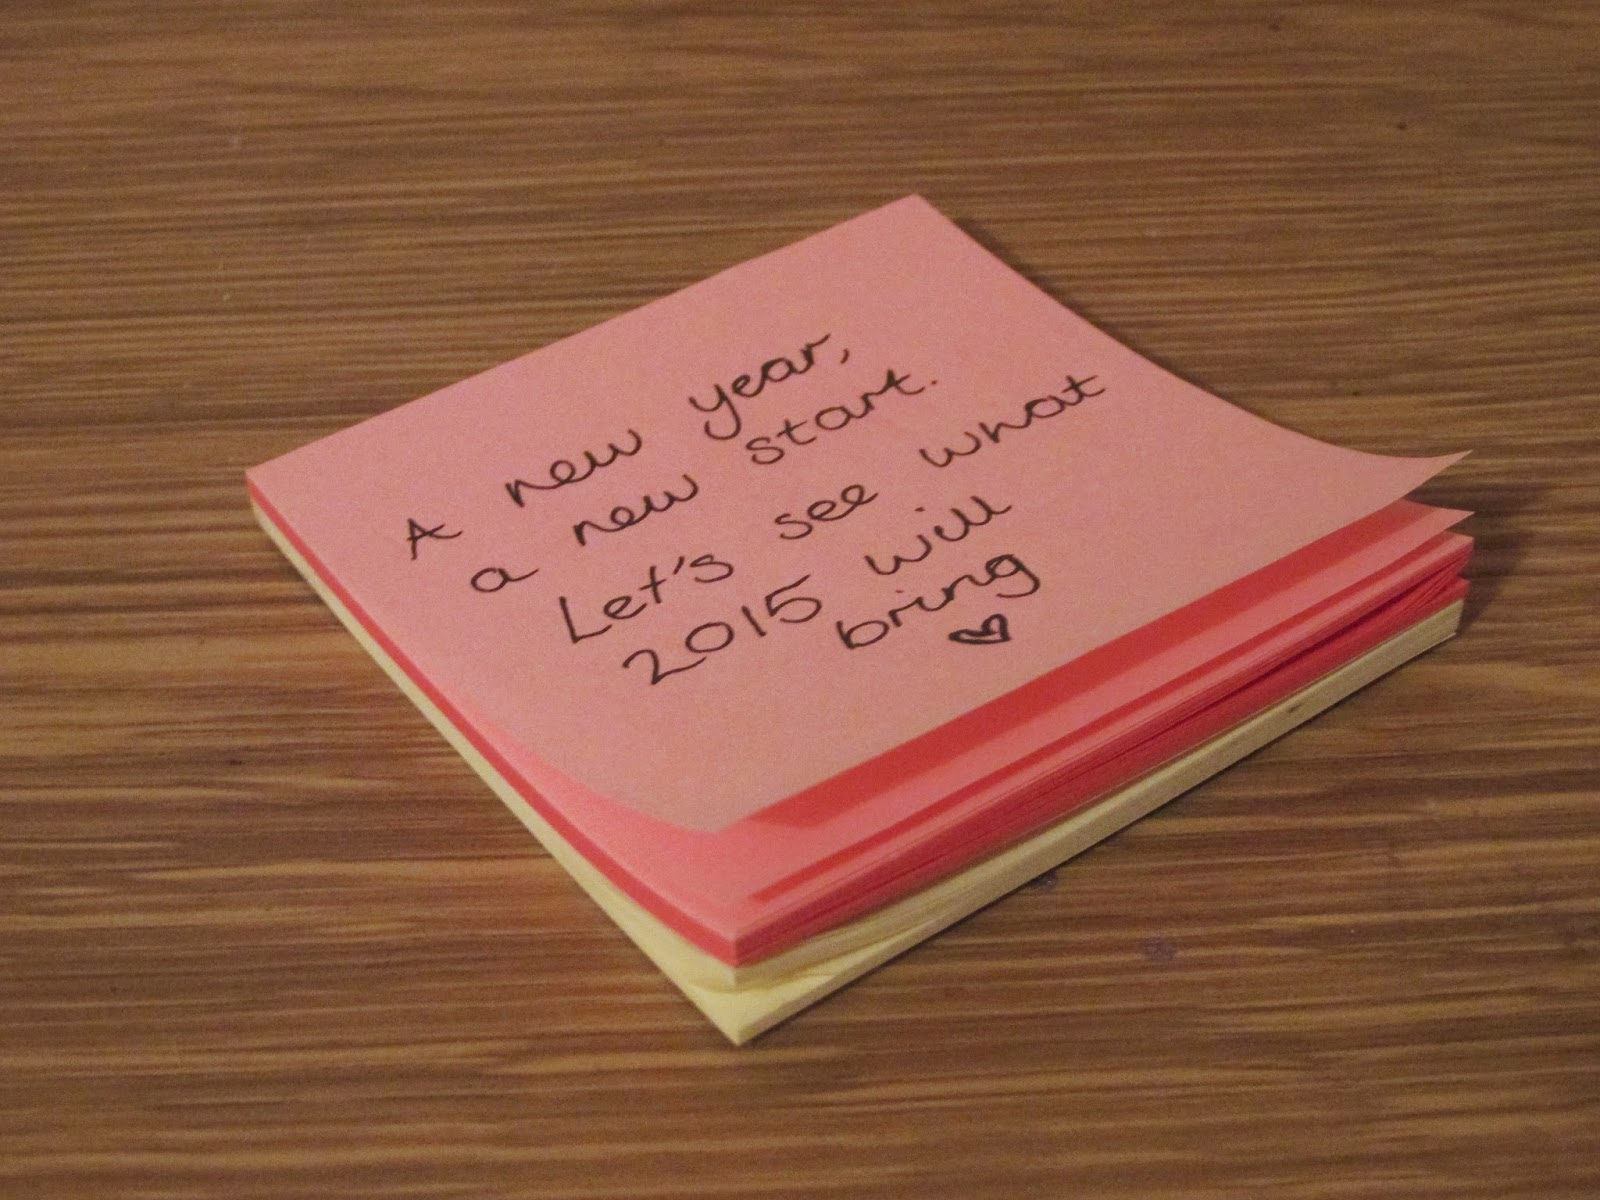 A new year,
a new start.
Let's see what
2015 will
bring
♥